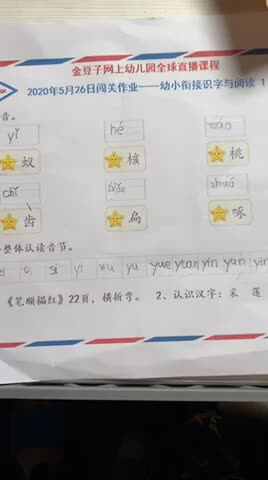 金豆子网上幼儿园全球直播课程
2020年5月26日闯关作业——幼小衔接识字与阅读 1
音。
yǐ hé táo
蚁 核 桃
chǐ biǎn zhuó
齿 扁 啄
整体认读音节。
ci si yi wu yu yue yuan yin yun yin
《笔顺描红》22页，横折弯。 2、认识汉字：采 莲